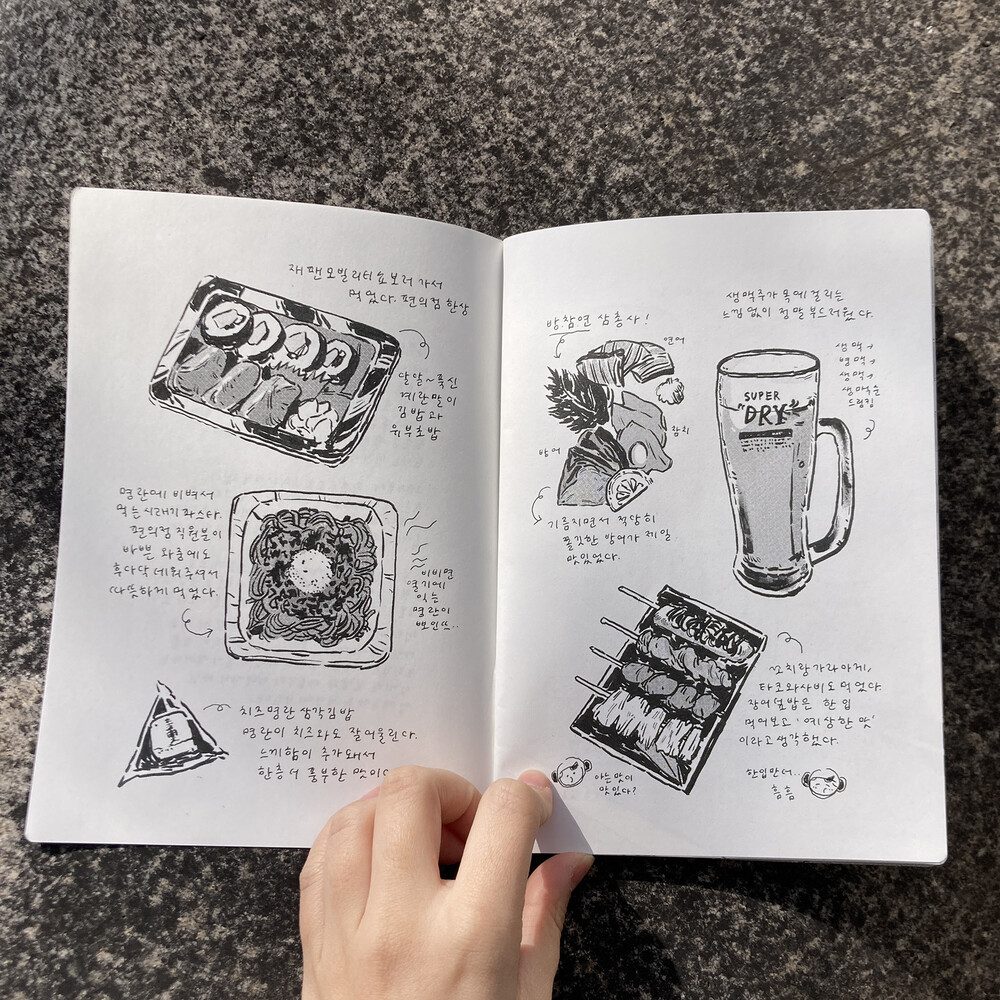 재팬모빌리티쇼 보러 가서
먹었다. 편의점 한상
달달~폭신
계란말이
김밥과
유부초밥
명란에 비벼서
먹는 시래기 파스타.
편의점 직원분이
바쁜 와중에도
후다닥 데워주셔서
따뜻하게 먹었다.
비비면
열기에
익는
명란이
뽀인뜨..
치즈명란 삼각김밥
명란이 치즈와도 잘 어울린다.
느끼함이 추가돼서
한층 더 풍부한 맛이다
방.참.연 삼총사!
연어
참치
방어
기름지면서 적당히
쫄깃한 방어가 제일
맛있었다.
생맥주가 목에 걸리는
느낌 없이 정말 부드러웠다.
생맥→
병맥→
생맥→
생맥 순
드링킹
SUPER
"DRY"
꼬치랑 가라아게,
타코와사비도 먹었다.
장어덮밥은 한 입
먹어보고 '예상한 맛'
이라고 생각했다.
아는 맛이
맛있다?
한입만 더..
흠흠